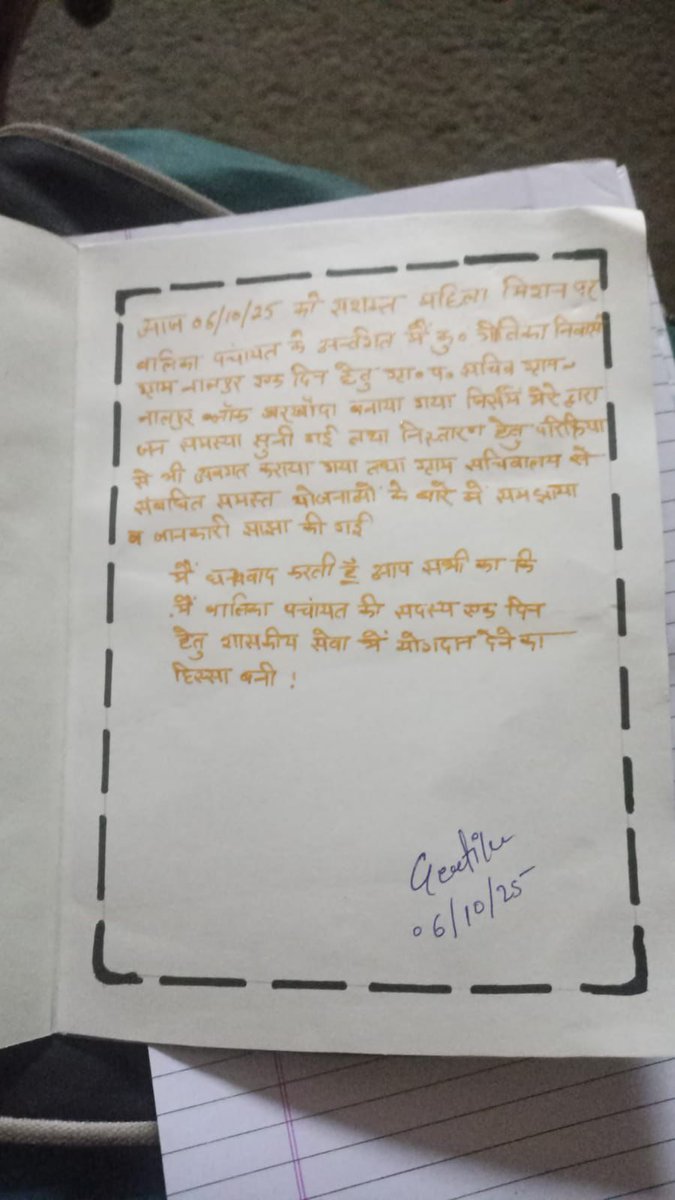 आज 06/10/25 को सशक्त महिला मिशन पर
बालिका पंचायत के अर्न्तगत मैं कु० गीतिका निवासी
ग्राम नानपुर एक दिन हेतु ग्रा० प० सचिव ग्राम-
नानपुर ब्लॉक खरखौदा बनाया गया जिसमें मेरे द्वारा
जन समस्या सुनी गई तथा निस्तारण हेतु परिक्रिया
से भी अवगत कराया गया तथा ग्राम सचिवालय से
संबंधित समस्त योजनाओं के बारे में समझाया
व जानकारी साझा की गई
मैं धन्यवाद करती हूँ आप सभी का कि
मैं बालिका पचांयत की सदस्य एक दिन
हेतु शासकीय सेवा में योगदान देने का
हिस्सा बनी !
Geetika
06/10/25